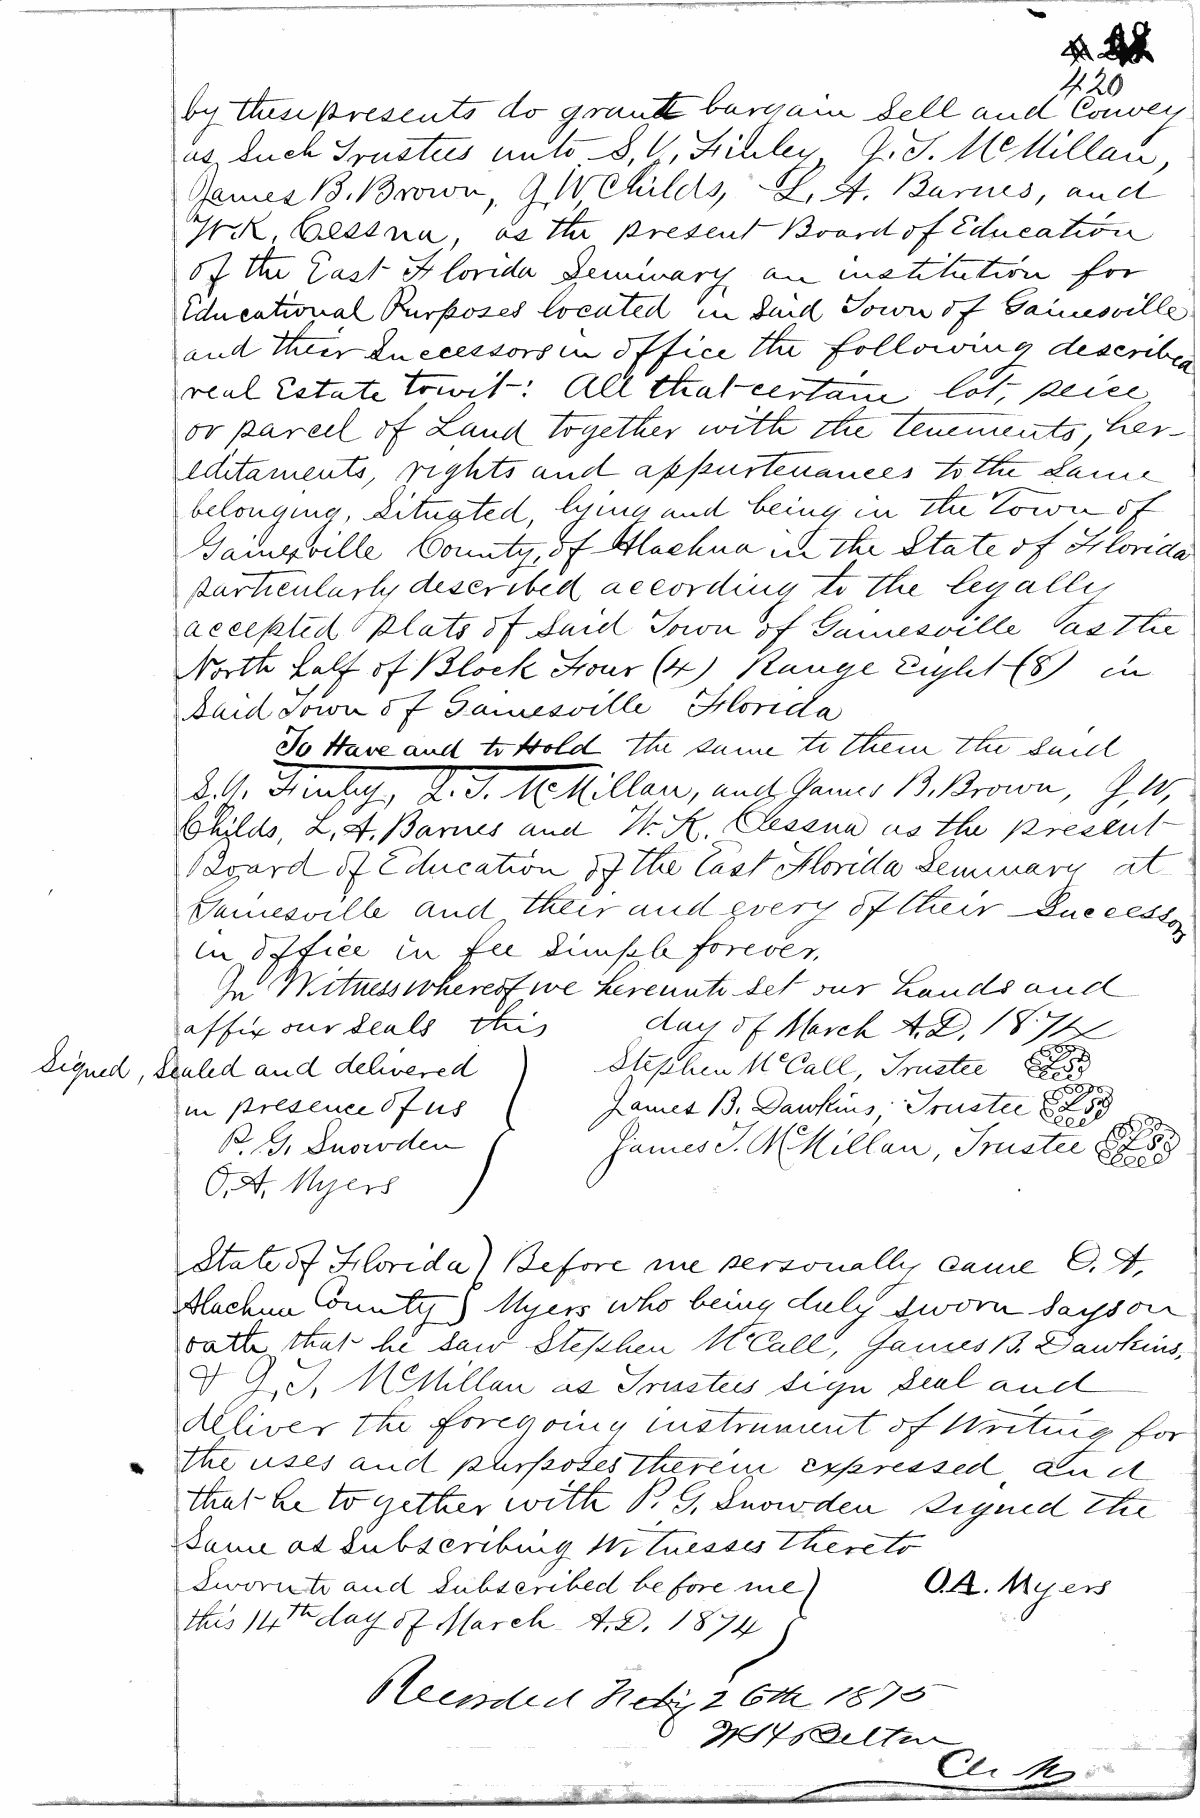 420
by these presents do grant bargain Sell and Convey
as Such Trustees unto S. Y. Finley, J. T. McMillan,
James B. Brown, J. W. Childs, L. A. Barnes, and
W. K. Cessna, as the present Board of Education
of the East Florida Seminary an institution for
Educational Purposes located in Said Town of Gainesville
and their Successors in office the following described
real Estate towit: All that certain lot, peice
or parcel of Land together with the tenements, her-
editaments, rights and appurtenances to the Same
belonging, Situated, lying and being in the Town of
Gainesville County, of Alachua in the State of Florida
particularly described according to the legally
accepted Plats of Said Town of Gainesville as the
North half of Block Four (4) Range Eight (8) in
Said Town of Gainesville Florida
To Have and to Hold the same to them the said
S. Y. Finley, J. T. McMillan, and James B. Brown, J. W.
Childs, L. A. Barnes and W. K. Cessna as the present
Board of Education of the East Florida Seminary at
Gainesville and their and every of their Successors
in office in fee Simple forever.
In Witness whereof we hereunto Set our hands and
affix our Seals this day of March A.D. 1874
Signed, Sealed and delivered ) Stephen McCall, Trustee LS
in presence of us James B. Dawkins, Trustee LS
P. G. Snowden James T. McMillan, Trustee LS
O. A. Myers
State of Florida ) Before me personally came O. A.
Alachua County } Myers who being duly Sworn Says on
oath that he saw Stephen McCall, James B. Dawkins,
& J. T. McMillan as Trustees sign Seal and
deliver the foregoing instrument of Writing for
the uses and purposes therein expressed and
that he together with P. G. Snowden Signed the
Same as Subscribing Witnesses thereto
Sworn to and Subscribed before me ) O. A. Myers
this 14th day of March A.D. 1874
Recorded Feby 26th 1875
Belton
Clerk